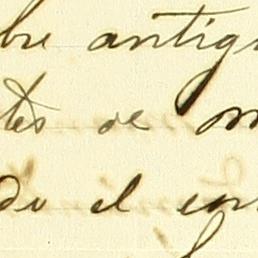 bre antig
tes de m
do el con